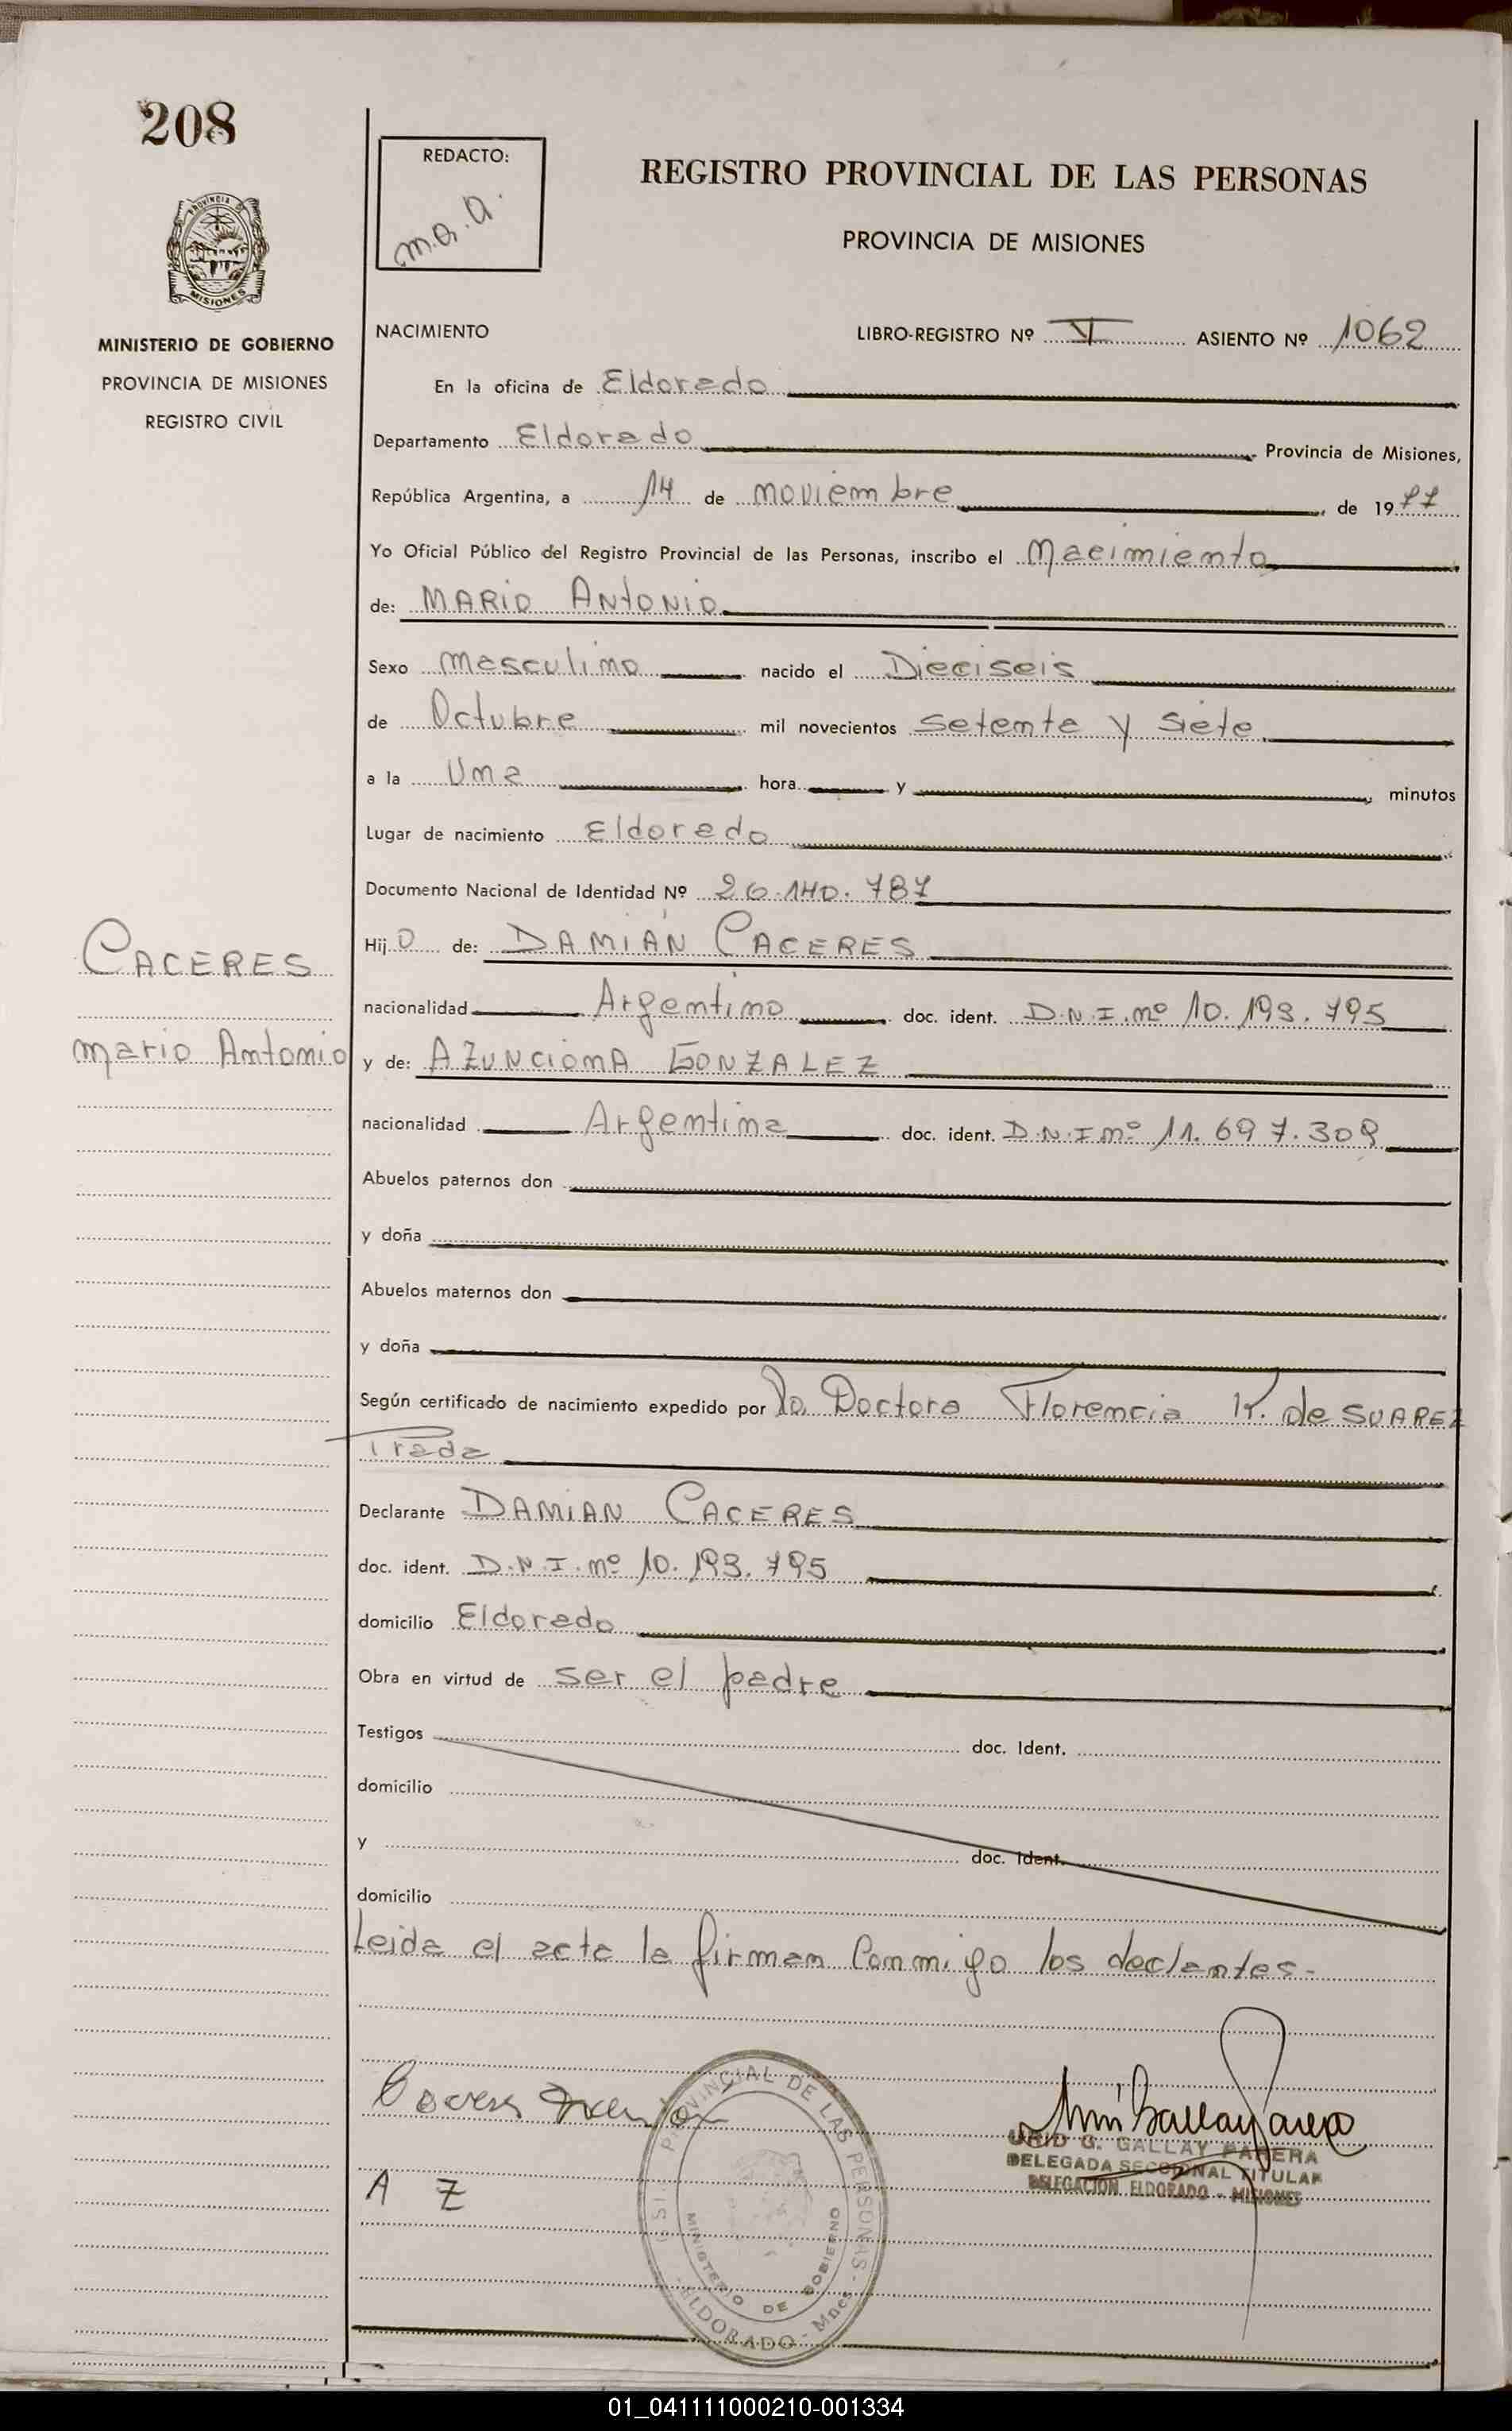 208
REDACTO:
m.a.a.
REGISTRO PROVINCIAL DE LAS PERSONAS
PROVINCIA DE MISIONES
PROVINCIA DE
MISIONES
MINISTERIO DE GOBIERNO
PROVINCIA DE MISIONES
REGISTRO CIVIL
NACIMIENTO LIBRO-REGISTRO Nº VI ASIENTO Nº 1062
En la oficina de Eldorado
Departamento Eldorado Provincia de Misiones,
República Argentina, a 14 de noviembre, de 1977
Yo Oficial Público del Registro Provincial de las Personas, inscribo el Nacimiento
de: MARIO ANTONIO
Sexo masculino nacido el Dieciseis
de Octubre mil novecientos setenta y siete
a la Una hora y minutos
Lugar de nacimiento Eldorado
Documento Nacional de Identidad Nº 26.140.787
CACERES
Mario Antonio
Hijo de: DAMIÁN CACERES
nacionalidad Argentino doc. ident. D.N.I. nº 10.193.795
y de: AZUNCIONA GONZALEZ
nacionalidad Argentina doc. ident. D.N.I nº 11.697.309
Abuelos paternos don
y doña
Abuelos maternos don
y doña
Según certificado de nacimiento expedido por la Doctora Florencia K. de SUAREZ
Trada
Declarante DAMIAN CACERES
doc. ident. D.N.I. nº 10.193.795
domicilio Eldorado
Obra en virtud de ser el padre
Testigos doc. Ident.
domicilio
y doc. Ident.
domicilio
Leida el acta la firman conmigo los declantes.-
A Z
PROVINCIAL DE LAS PERSONAS
MINISTERIO DE GOBIERNO
ELDORADO - Mnes.
G. GALLAY PARERA
DELEGADA SECCIONAL TITULAR
DELEGACION ELDORADO - MISIONES
01_041111000210-001334